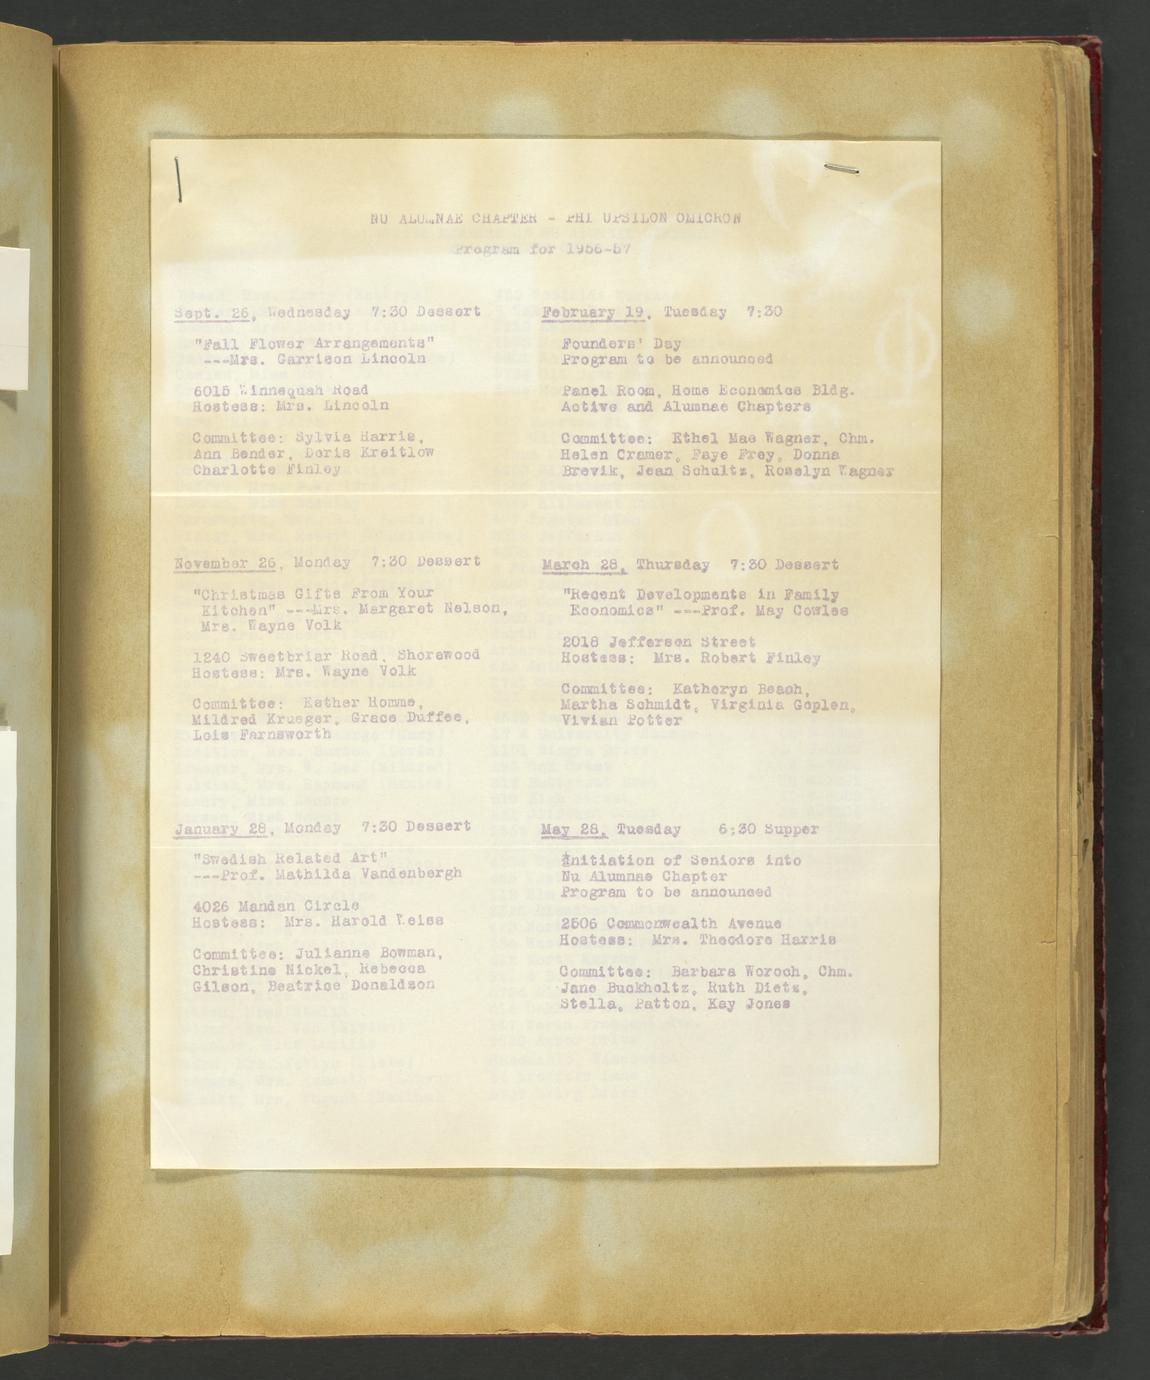 NU ALUMNAE CHAPTER - PHI UPSILON OMICRON
Program for 1956-57
Sept. 26, Wednesday 7:30 Dessert
"Fall Flower Arrangements"
---Mrs. Garrison Lincoln
6015 Winnequah Road
Hostess: Mrs. Lincoln
Committee: Sylvia Harris,
Ann Bender, Doris Kreitlow
Charlotte Finley
November 26, Monday 7:30 Dessert
"Christmas Gifts From Your
Kitchen" ---Mrs. Margaret Nelson,
Mrs. Wayne Volk
1240 Sweetbriar Road, Shorewood
Hostess: Mrs. Wayne Volk
Committee: Esther Homme,
Mildred Krueger, Grace Duffee,
Lois Farnsworth
January 28, Monday 7:30 Dessert
"Swedish Related Art"
---Prof. Mathilda Vandenbergh
4026 Mandan Circle
Hostess: Mrs. Harold Weiss
Committee: Julianne Bowman,
Christine Nickel, Rebecca
Gilson, Beatrice Donaldson
February 19, Tuesday 7:30
Founders' Day
Program to be announced
Panel Room, Home Economics Bldg.
Active and Alumnae Chapters
Committee: Ethel Mae Wagner, Chm.
Helen Cramer, Faye Frey, Donna
Brevik, Jean Schultz, Roselyn Wagner
March 28, Thursday 7:30 Dessert
"Recent Developments in Family
Economics" ---Prof. May Cowles
2018 Jefferson Street
Hostess: Mrs. Robert Finley
Committee: Katheryn Beach,
Martha Schmidt, Virginia Goplen,
Vivian Potter
May 28, Tuesday 6:30 Supper
Initiation of Seniors into
Nu Alumnae Chapter
Program to be announced
2506 Commonwealth Avenue
Hostess: Mrs. Theodore Harris
Committee: Barbara Woroch, Chm.
Jane Buckholtz, Ruth Dietz,
Stella, Patton, Kay Jones